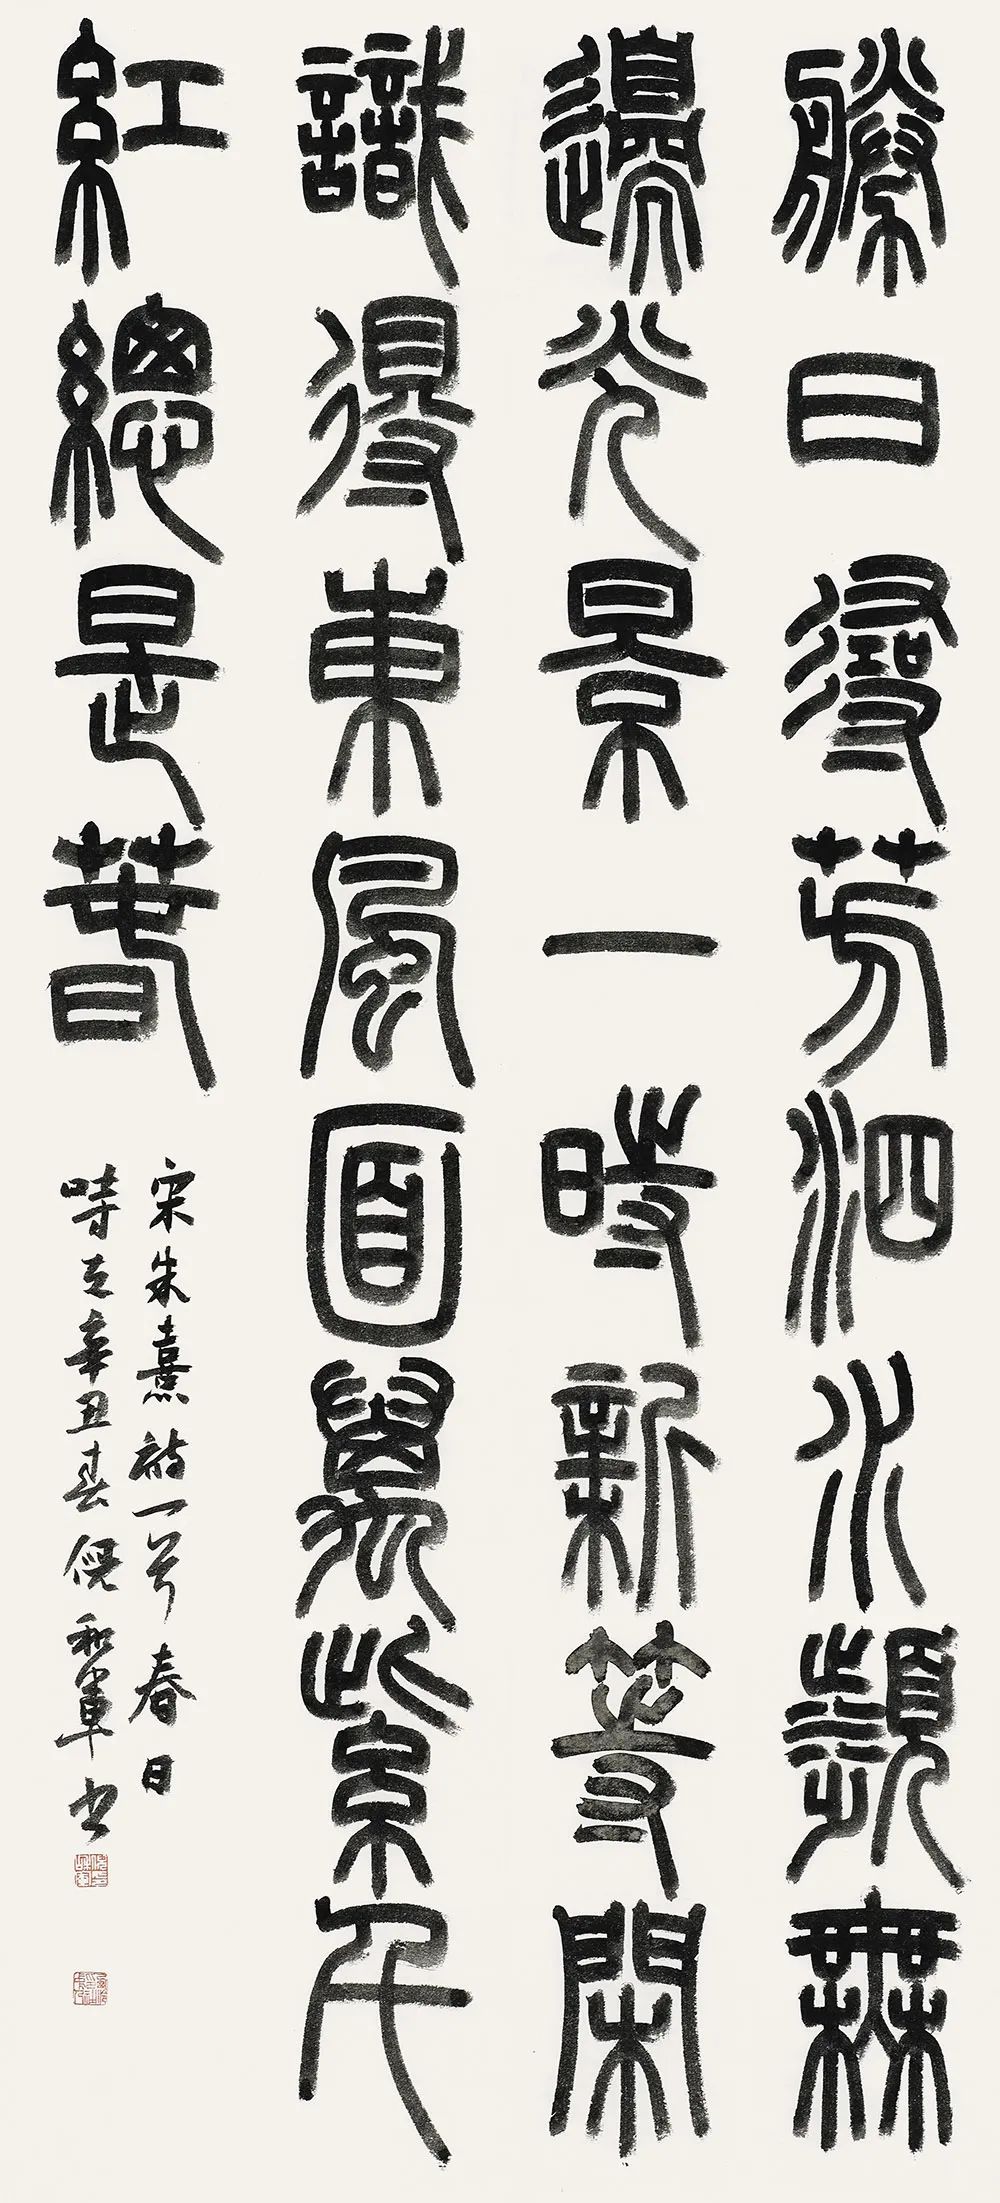 勝日尋芳泗水瀕無
邊光景一時新等閑
識得東風面萬紫千
紅總是春
宋朱熹詩一首春日
時在辛丑春倪和軍書